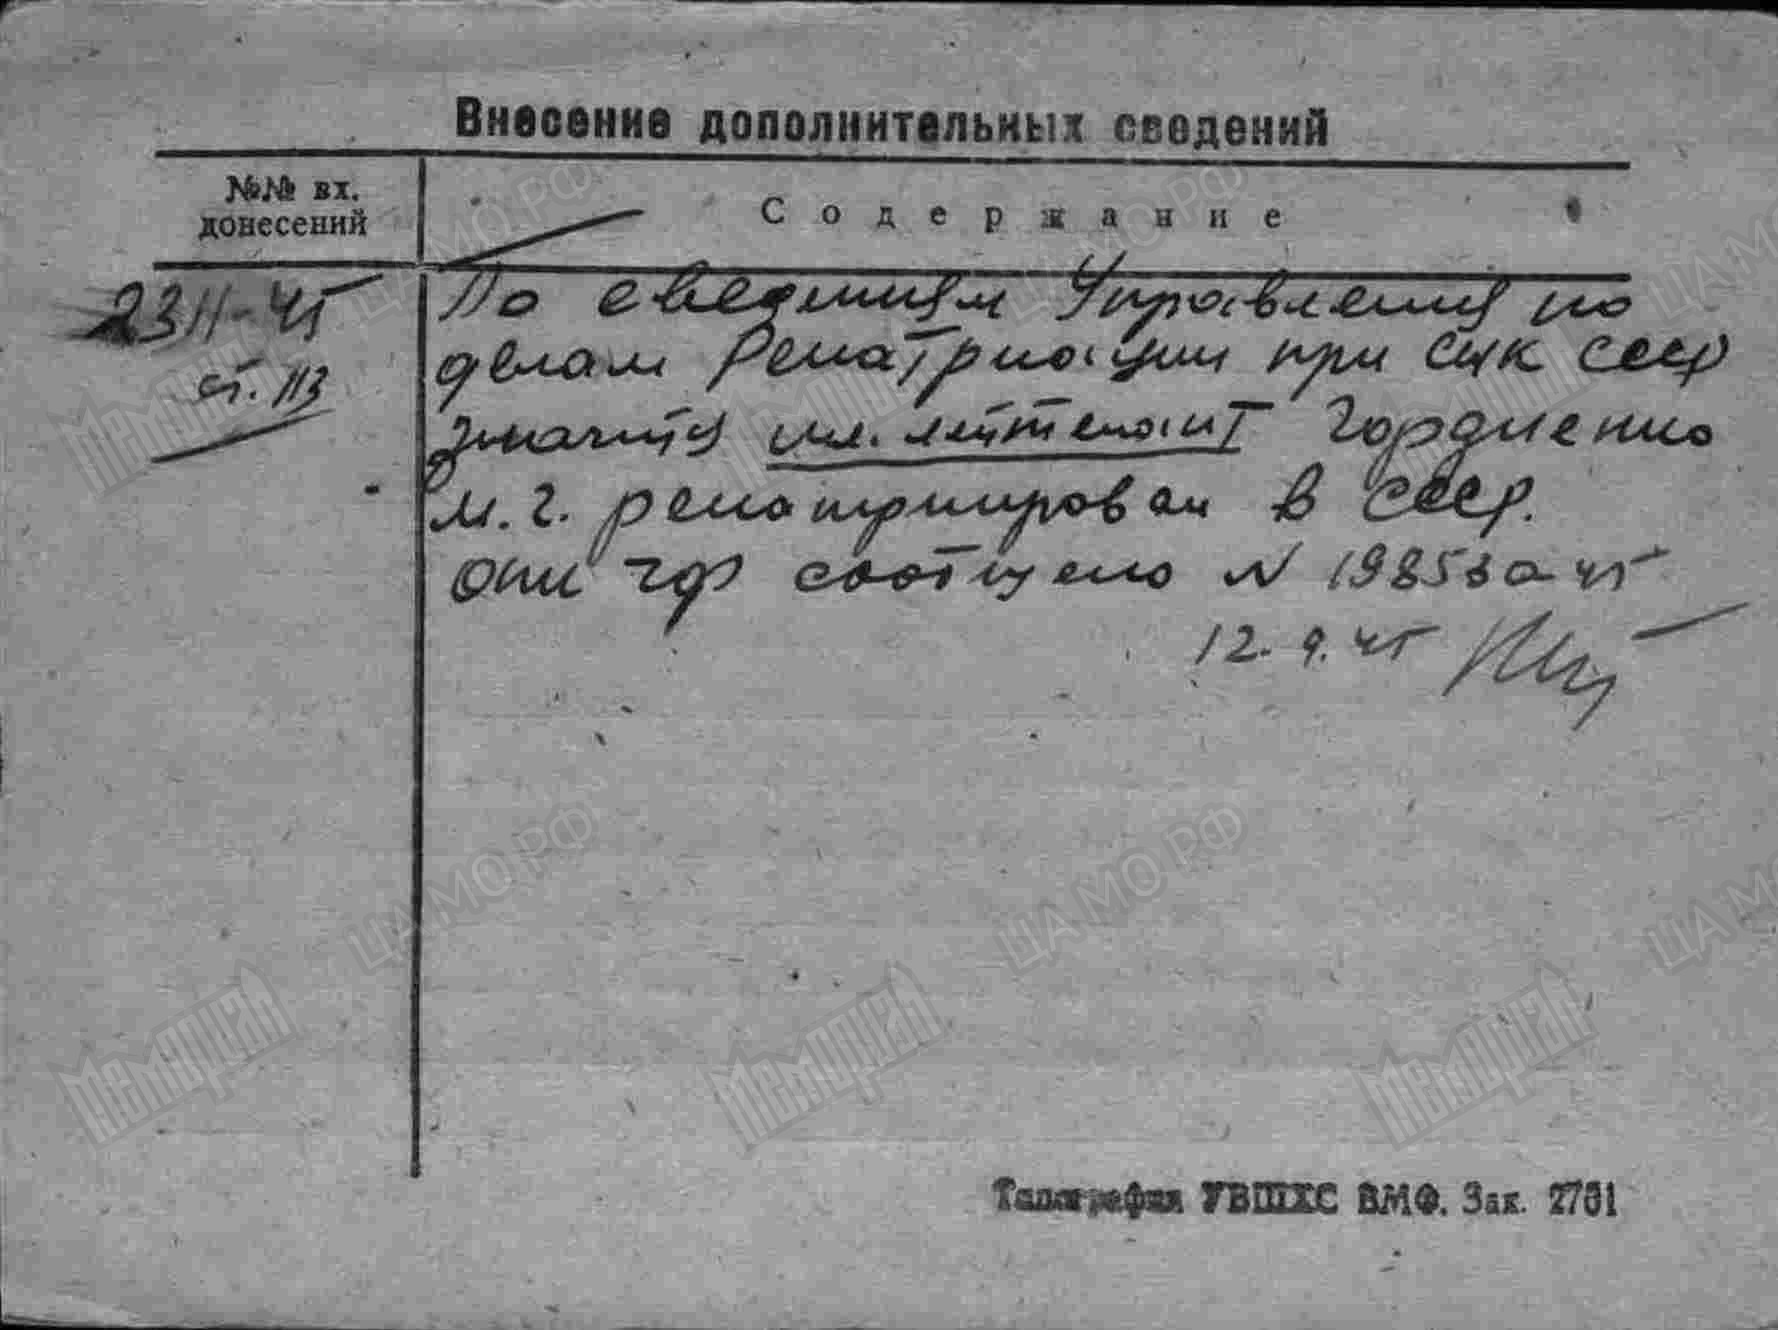 Внесение дополнительных сведений
№№ вх.
донесений
Содержание
2311-45
ст. 113
По сведениям Управления по
делам Репатриации при СНК СССР
значится мл. лейтенант Гордиенко
М. Г. репатриирован в СССР.
ОПИ ЧФ сообщено N 19853а-45
12.9.45
Типография УВШХС ВМФ. Зак. 2731
Мемориал
ЦАМО РФ